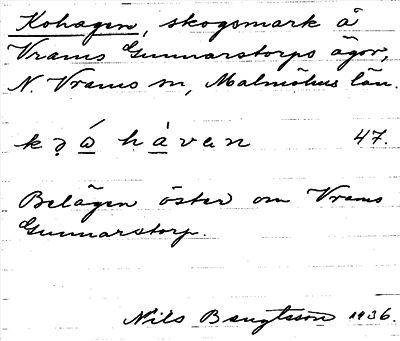 Kohagen, skogsmark å
Vrams Gunnarstorps ägor,
N. Vrams sn, Malmöhus län.
hávan 47.
Belägen öster om Vrams
Gunnarstorp.
Nils Bengtsson 1936.